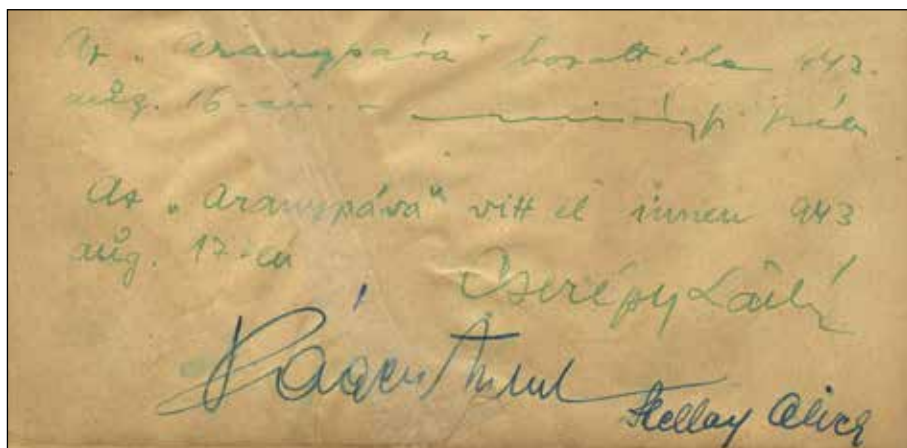 Az „Aranypáva" hozott ide 943.
aug. 16-án. -
Az „Aranypáva" vitt el innen 943
aug. 17-én
Cserépy László
Szellay Alice